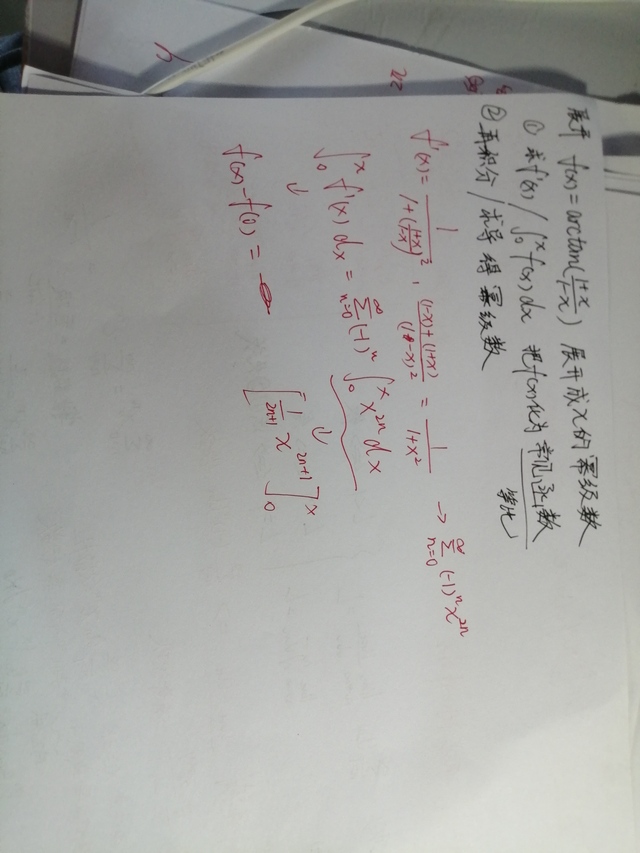 展开 f(x)=arctan(\frac{1+x}{1-x}) 展开成x的幂级数
① 求f'(x) / ∫_0^x f(x)dx 把f(x)化为常见函数
等比
② 再积分/求导得幂级数
f'(x)= \frac{1}{1+(\frac{1+x}{1-x})^2} · \frac{(1-x)+(1+x)}{(1-x)^2} = \frac{1}{1+x^2} → \sum_{n=0}^{∞} (-1)^n x^{2n}
∫_0^x f'(x)dx = \sum_{n=0}^{∞} (-1)^n ∫_0^x x^{2n}dx
↓ ↓
f(x)-f(0)= [\frac{1}{2n+1} x^{2n+1}]_0^x